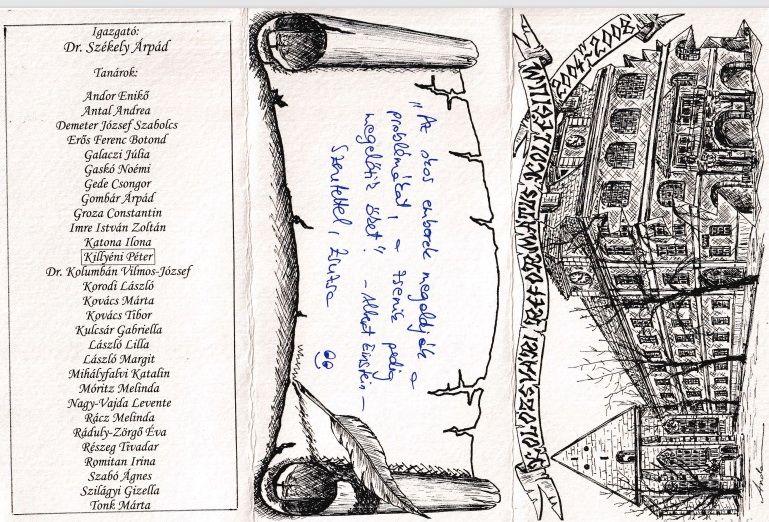 Igazgató:
Dr. Székely Árpád
Tanárok:
Andor Enikő
Antal Andrea
Demeter József Szabolcs
Erős Ferenc Botond
Galaczi Júlia
Gaskó Noémi
Gede Csongor
Gombár Árpád
Groza Constantin
Imre István Zoltán
Katona Ilona
Killyéni Péter
Dr. Kolumbán Vilmos-József
Korodi László
Kovács Márta
Kovács Tibor
Kulcsár Gabriella
László Lilla
László Margit
Mihályfalvi Katalin
Móritz Melinda
Nagy-Vajda Levente
Rácz Melinda
Ráduly-Zörgő Éva
Részeg Tivadar
Romitan Irina
Szabó Ágnes
Szilágyi Gizella
Tonk Márta
„Az okos emberek megoldják a
problémákat, a zsenik pedig
megelőzik őket"
- Albert Einstein -
Szeretettel, Zsuzsa
2003-2007